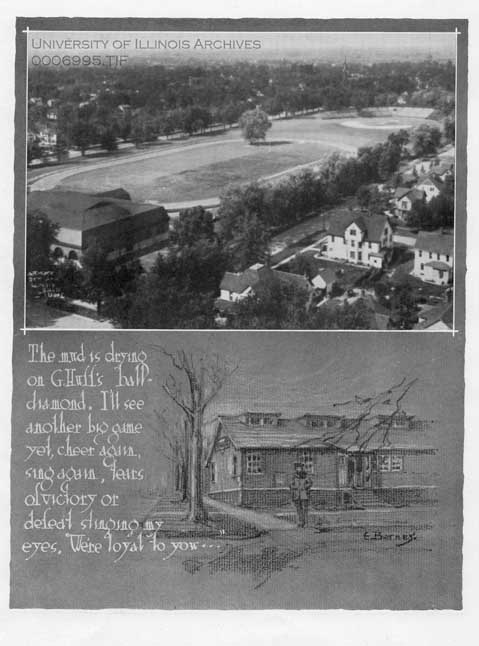 UNIVERSITY OF ILLINOIS ARCHIVES
0006995.TIF
The mud is drying
on G.Huff's ball-
diamond. I'll see
another big game
yet, cheer again,
sing again, tears
of victory or
defeat stinging my
eyes. We're loyal to you...."
E. Barney.